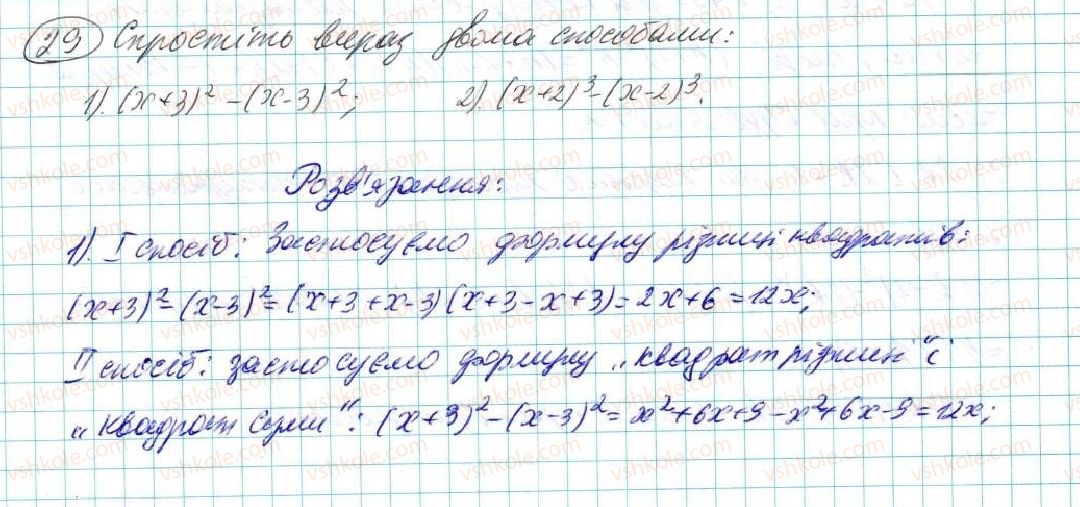 29 Спростіть вираз двома способами:
1). (x+3)² - (x-3)²; 2). (x+2)³-(x-2)³.
Розв'язання:
1). I спосіб: Застосуємо формулу різниці квадратів:
(x+3)² - (x-3)² = (x+3+x-3)(x+3-x+3) = 2x+6 = 12x;
II спосіб: застосуємо формулу „квадрат різниці“ і
„квадрат суми“: (x+3)² - (x-3)² = x²+6x+9-x²+6x-9 = 12x;